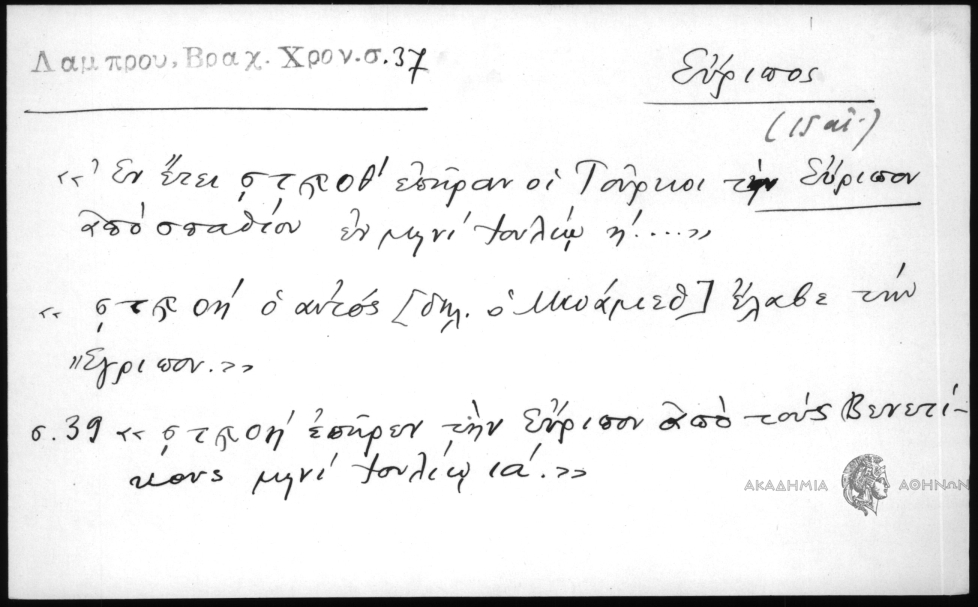 Λαμπρου, Βραχ. Χρον. σ. 37
Εὔριπος
(15 αἰ.)
«Ἐν ἔτει ϛϡοθ' ἐπῆραν οἱ Τοῦρκοι τὴν Εὔριπον
ἀπὸ σπαθίου ἐν μηνὶ Ἰουλίῳ η'....»
« ϛϡοή ὁ αὐτός [δηλ. ὁ Μουάμεθ] ἔλαβε τὴν
Ἔγριπον.»
σ. 39 « ϛϡοή ἐπῆρεν τὴν Εὔριπον ἀπὸ τοὺς Βενετί-
κους μηνὶ Ἰουλίῳ ια'.»
ΑΚΑΔΗΜΙΑ ΑΘΗΝΩΝ